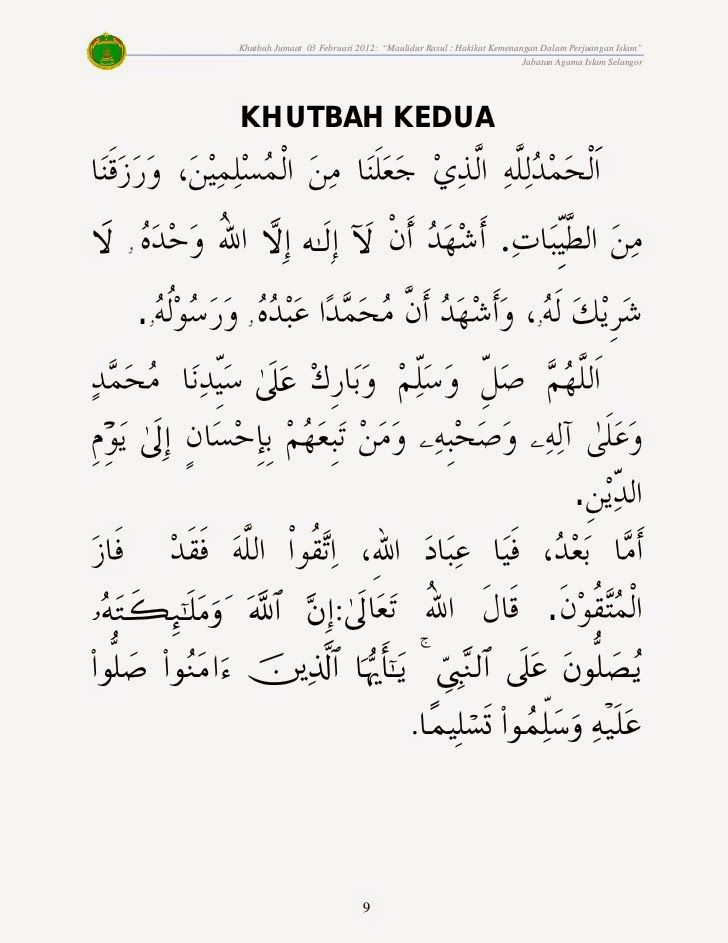 Khutbah Jumaat 03 Februari 2012: “Maulidur Rasul : Hakikat Kemenangan Dalam Perjuangan Islam”
Jabatan Agama Islam Selangor
KHUTBAH KEDUA
اَلْحَمْدُلِلَّهِ الَّذِيْ جَعَلَنَا مِنَ الْمُسْلِمِيْنَ، وَرَزَقَنَا
مِنَ الطَّيِّبَاتِ. أَشْهَدُ أَنْ لَآ إِلَـٰه إِلَّا اللهُ وَحْدَهُۥ لَا
شَرِيْكَ لَهُۥ، وَأَشْهَدُ أَنَّ مُحَمَّدًا عَبْدُهُۥ وَرَسُوْلُهُۥ.
اَللَّهُمَّ صَلِّ وَسَلِّمْ وَبَارِكْ عَلَىٰ سَيِّدِنَا مُحَمَّدٍ
وَعَلَىٰ آلِهِۦ وَصَحْبِهِۦ وَمَنْ تَبِعَهُمْ بِإِحْسَانٍ إِلَىٰ يَوْمِ
الدِّيْنِ.
أَمَّا بَعْدُ، فَيَا عِبَادَ اللهِ، اِتَّقُواْ اللَّهَ فَقَدْ فَازَ
الْمُتَّقُوْنَ. قَالَ اللهُ تَعَالَىٰ:إِنَّ ٱللَّهَ وَمَلَـٰٓئِكَتَهُۥ
يُصَلُّونَ عَلَى ٱلنَّبِيِّ ۚ يَـٰٓأَيُّهَا ٱلَّذِينَ ءَامَنُواْ صَلُّواْ
عَلَيْهِ وَسَلِّمُواْ تَسْلِيمًا.
9